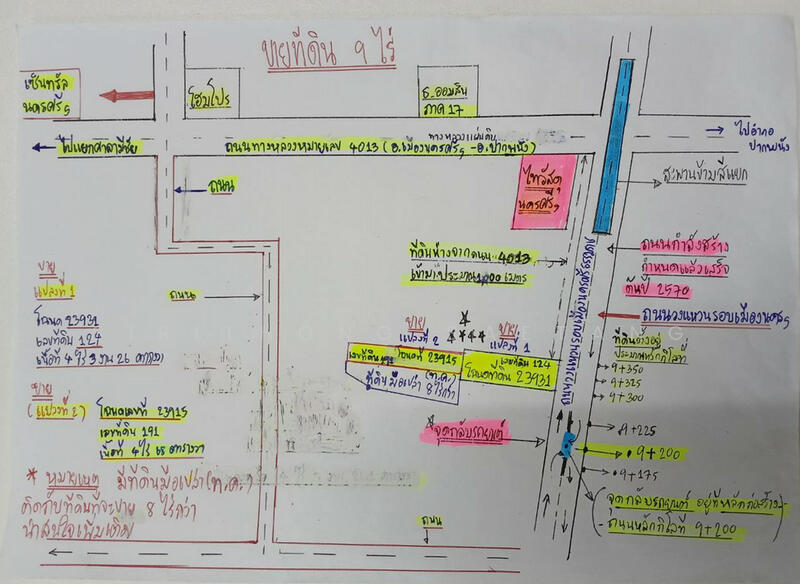 ขายที่ดิน ๙ ไร่
เซ็นทรัล
นครศรีฯ
โฮมโปร
ธ.ออมสิน
ภาค 17
ไปแยกศาลามีชัย
ทางหลวงแผ่นดิน
ถนนทางหลวงหมายเลข 4013 (อ.เมืองนครศรีฯ - อ.ปากพนัง)
ไปอำเภอ
ปากพนัง
ถนน
ไทวัสดุ
นครศรีฯ
สะพานข้ามสี่แยก
ที่ดินห่างจากถนน 4013
เข้ามาประมาณ 1,000 เมตร
ถนนกำลังสร้าง
กำหนดแล้วเสร็จ
ต้นปี 2570
ถนนวงแหวนรอบเมืองนครศรีฯ
ถนนวงแหวนรอบเมืองนครศรีธรรมราช
ขาย
แปลงที่ 1
โฉนด 23931
เลขที่ดิน 124
เนื้อที่ 4 ไร่ 3 งาน 26 ตารางวา
ถนน
ขาย
แปลงที่ 2
ขาย
แปลงที่ 1
เลขที่ดิน 191
โฉนด 23915
เลขที่ดิน 124
โฉนดที่ดิน 23931
ที่ดินมือเปล่า (ท.ค.) 8 ไร่กว่า
ที่ดินตั้งอยู่
ประมาณหลักกิโลที่
9+350
9+325
9+300
9+225
9+200
9+175
ขาย
(แปลงที่ 2)
โฉนดเลขที่ 23915
เลขที่ดิน 191
เนื้อที่ 4 ไร่ 65 ตารางวา
จุดกลับรถยนต์
* หมายเหตุ มีที่ดินมือเปล่า (ท.ค.)
ติดกับที่ดินที่จะขาย 8 ไร่กว่า
น่าสนใจเพิ่มเติม
(จุดกลับรถยนต์ อยู่ที่หลักก่อสร้าง)
- ถนนหลักกิโลที่ 9+200
ถนน